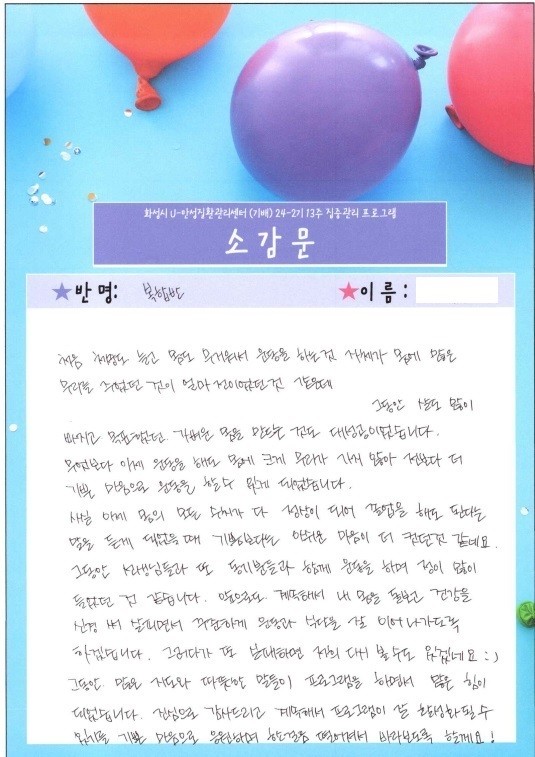 화성시 U-만성질환관리센터 (기배) 24-2기 13주 집중관리 프로그램
소감문
반 명: 복합반
이 름 :
처음 체중도 늘고 몸도 무거워서 운동을 하는 것 자체가 몸에 많은
무리를 주었던 것이 얼마 전이었던 것 같은데
그동안 살도 많이
빠지고 목표였던 가벼운 몸을 만드는 것도 대성공이었습니다.
무엇보다 이제 운동을 해도 몸에 크게 무리가 가지 않아 전보다 더
기쁜 마음으로 운동을 할 수 있게 되었습니다.
사실 이제 몸의 모든 수치가 다 정상이 되어 졸업을 해도 된다는
말을 듣게 되었을 때 기쁘기보다는 아쉬운 마음이 더 컸던 것 같네요.
그동안 선생님들과 또 동기분들과 함께 운동을 하며 정이 많이
들었던 것 같습니다. 앞으로도 계속해서 내 몸을 돌보고 건강을
신경 써 살피면서 꾸준하게 운동과 식단을 잘 이어나가도록
하겠습니다. 그러다가 또 날 때하면 저희 다시 볼 수도 있겠네요 :)
그동안 많은 지도와 따뜻한 말들이 프로그램을 하면서 많은 힘이
되었습니다. 진심으로 감사드리고 계속해서 프로그램이 잘 활성화될 수
있기를 기쁜 마음으로 응원하며 한걸음 떨어져서 바라보도록 할게요!